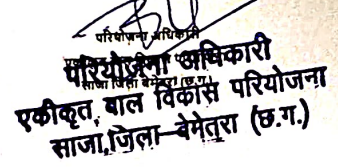 परियोजना अधिकारी
साजा जिला बेमेतरा (छ.ग.)
परियोजना अधिकारी
एकीकृत बाल विकास परियोजना
साजा,जिला-बेमेतरा (छ.ग.)